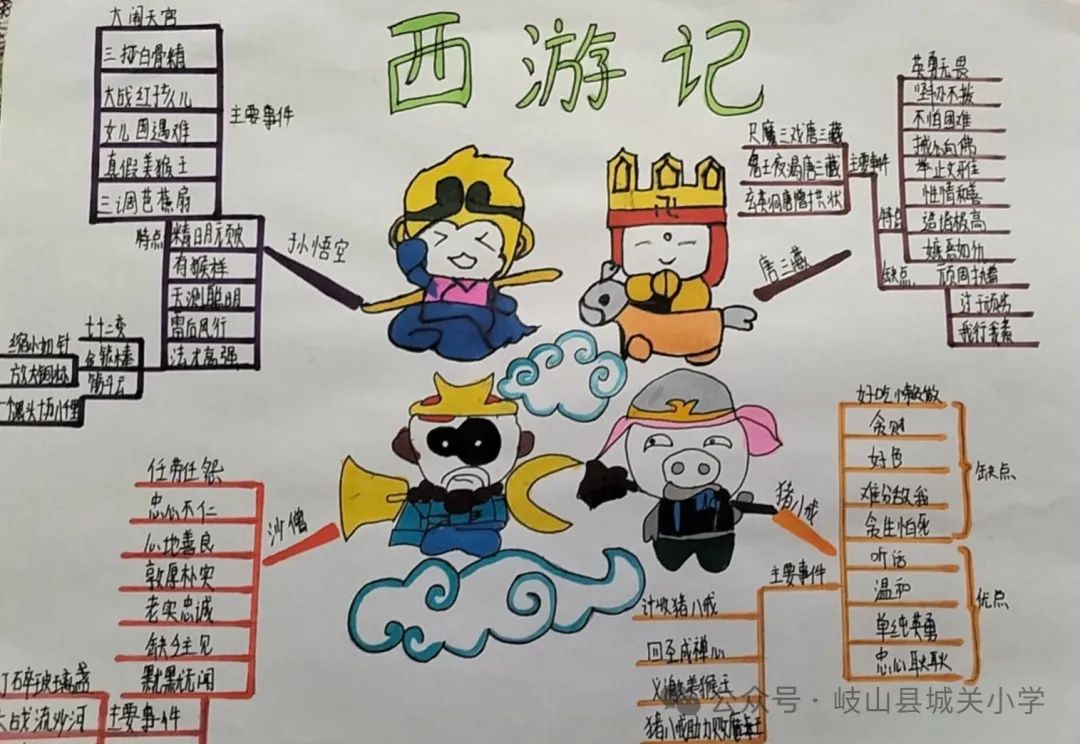 西游记
大闹天宫
三打白骨精
大战红孩儿
女儿国遇难
真假美猴王
三调芭蕉扇
主要事件
特点
孙悟空
有猴样
天测聪明
雷后风行
法术高强
七十二变
金箍棒
筋斗云
缩小如针
一个跟头十万八千里
英勇无畏
坚忍不拨
不怕困难
举止文雅
性情和善
造诣极高
嫉恶如仇
特点
缺点
顽固执着
过于顽劣
我行我素
尺魔三戏唐三藏
鬼王夜渴唐三藏
主要事件
唐三藏
任劳任怨
忠心不仁
心地善良
敦厚朴实
老实忠诚
缺乏主见
默默无闻
沙僧
打碎玻璃盏
大战流沙河
主要事件
好吃懒散
贪财
好色
难分敌我
贪生怕死
缺点
听话
温和
单纯英勇
忠心耿耿
优点
猪八戒
主要事件
计收猪八戒
义激美猴王
猪八戒助力败魔王
公众号·岐山县城关小学